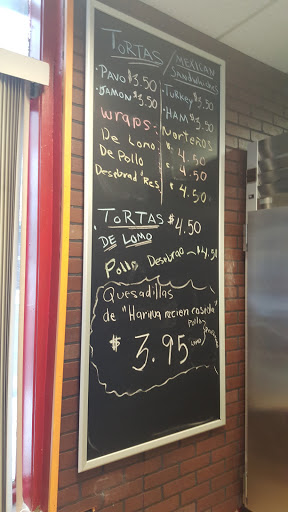 TORTAS / MEXICAN Sandwiches
· PAVO $3.50 · Turkey $3.50
· JAMON $3.50 · HAM $3.50
Wraps - Norteños
De Lomo $4.50
De Pollo $4.50
Desebrad Res $4.50
· TORTAS $4.50
DE LOMO
Pollo Desebrao - $4.50
Quesadillas
de "Harina recien cosida"
Pollo
$3.95 Lomo